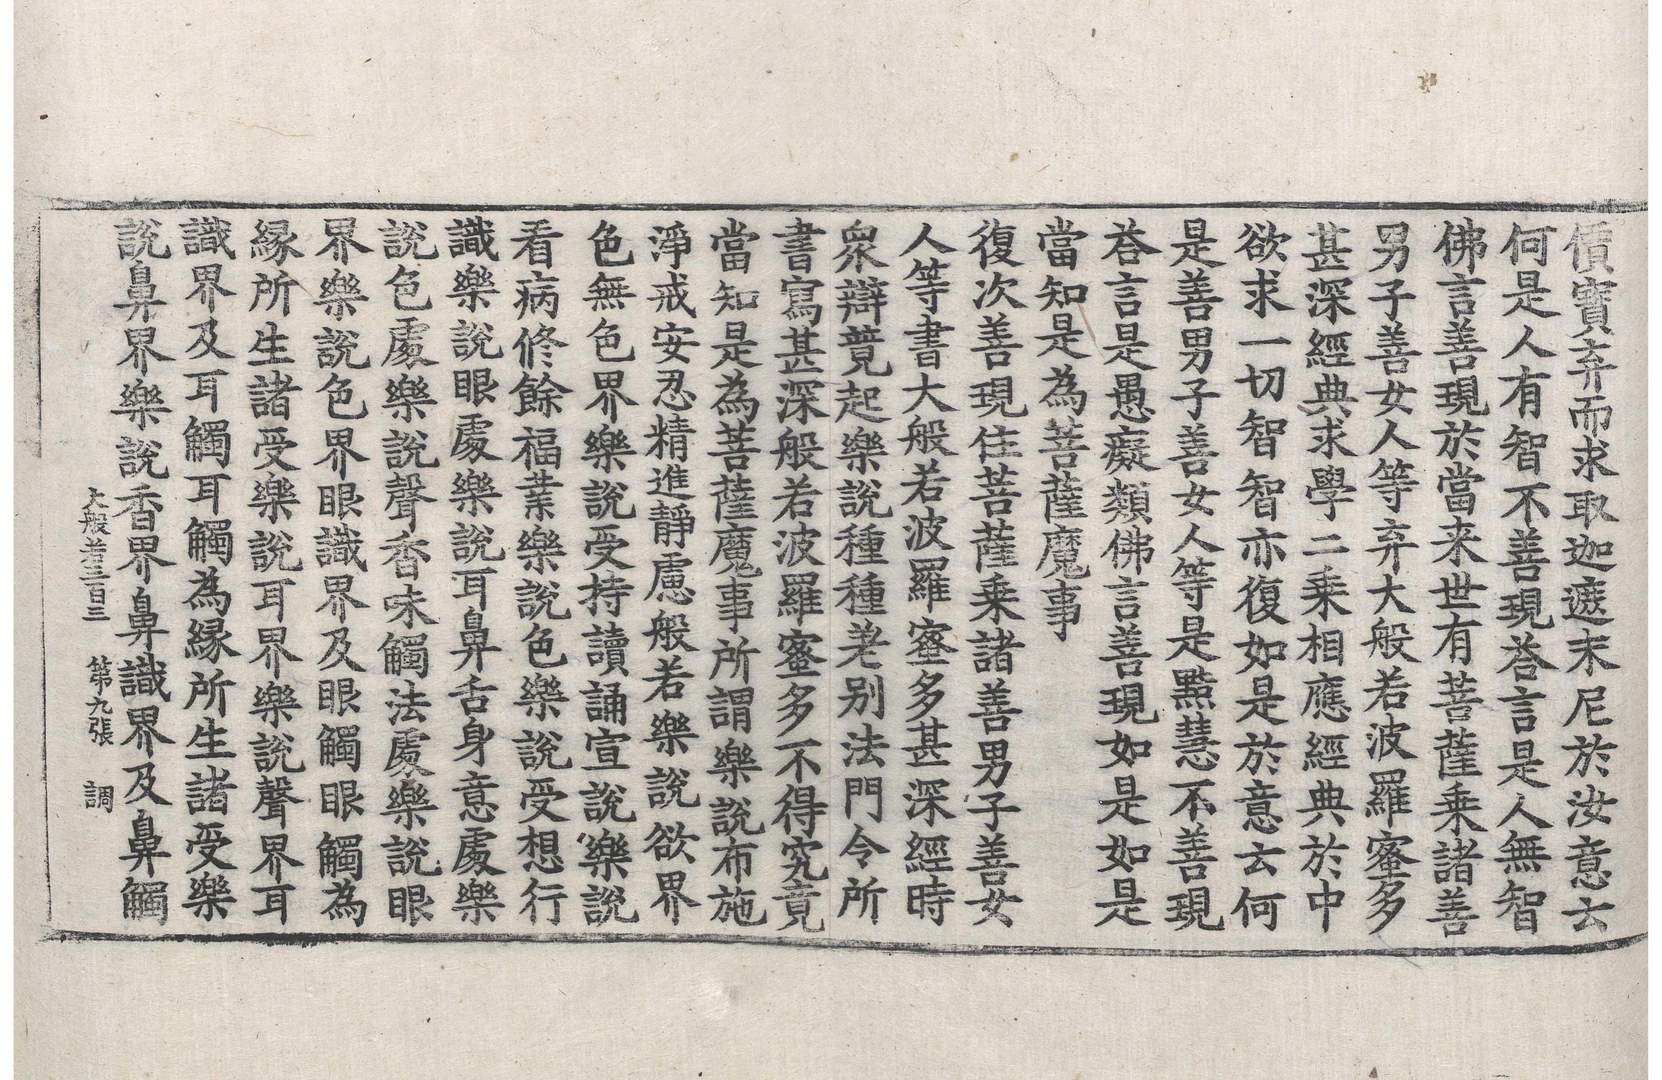 價寶弃而求取迦遮末尼於汝意云
何是人有智不善現荅言是人無智
佛言善現於當来世有菩薩乗諸善
男子善女人等弃大般若波羅蜜多
甚深經典求學二乗相應經典於中
欲求一切智智亦復如是於意云何
是善男子善女人等是黠慧不善現
荅言是愚癡類佛言善現如是如是
當知是為菩薩魔事
復次善現住菩薩乗諸善男子善女
人等書大般若波羅蜜多甚深經時
衆辯竟起樂說種種差别法門令所
書寫甚深般若波羅蜜多不得究竟
當知是為菩薩魔事所謂樂說布施
淨戒安忍精進靜慮般若樂說欲界
色無色界樂說受持讀誦宣說樂說
看病修餘福業樂說色樂說受想行
識樂說眼處樂說耳鼻舌身意處樂
說色處樂說聲香味觸法處樂說眼
界樂說色界眼識界及眼觸眼觸為
縁所生諸受樂說耳界樂說聲界耳
識界及耳觸耳觸為縁所生諸受樂
說鼻界樂說香界鼻識界及鼻觸
大般若三百三 第九張 調